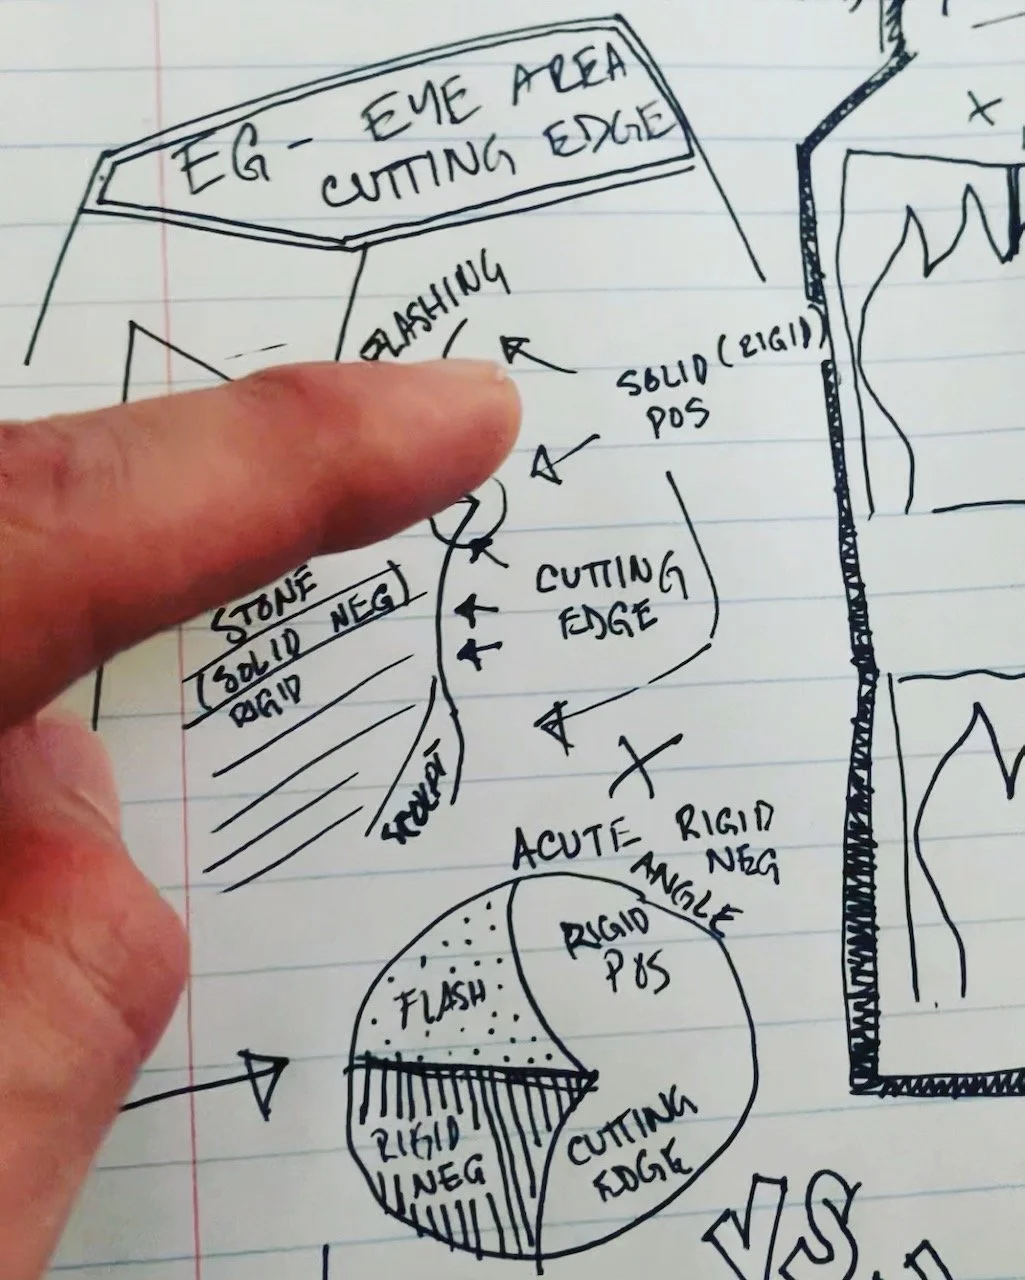 EG - EYE AREA
CUTTING EDGE
FLASHING
SOLID (RIGID)
POS
STONE
(SOLID NEG)
RIGID
CUTTING
EDGE
SCULPT
ACUTE
ANGLE
RIGID
NEG
FLASH
RIGID
POS
RIGID
NEG
CUTTING
EDGE
VS.